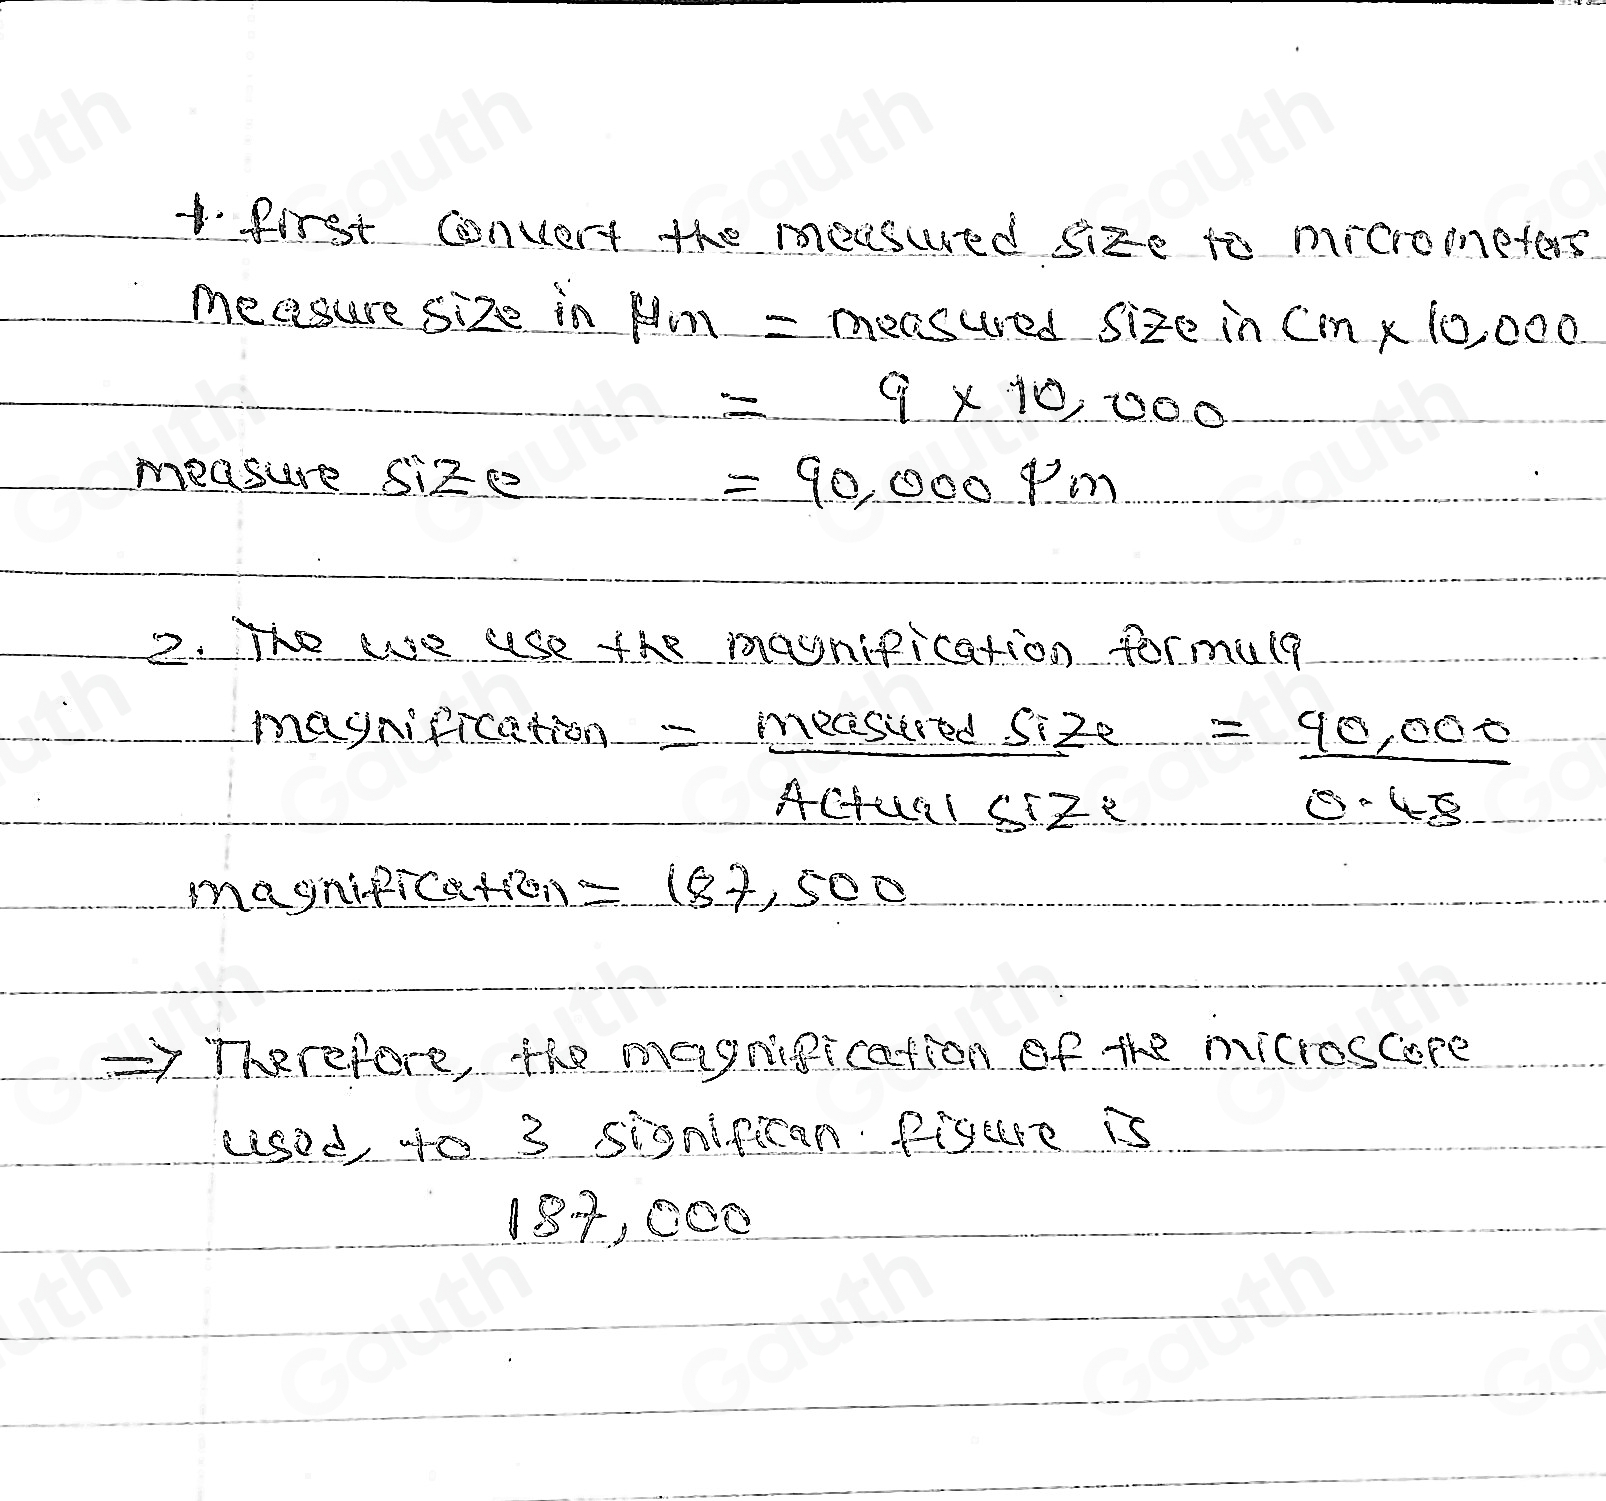 1. first convert the measured size to micrometers
measure size in μm = measured size in cm x 10,000
= 9 x 10,000
measure size = 90,000 μm
2. The we use the magnification formula
magnification = measured size = 90,000
Actual size 0.48
magnification = 187,500
=> Therefore, the magnification of the microscope
used, to 3 significan. figure is
187,000